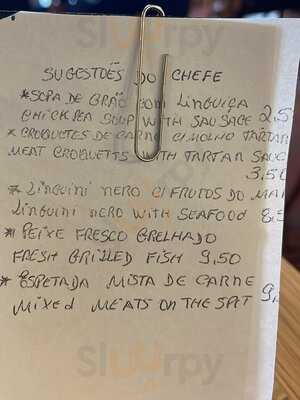 SUGESTÕES DO CHEFE
*SOPA DE GRÃO COM LINGUIÇA
CHICKPEA SOUP WITH SAUSAGE 2,5
*CROQUETES DE CARNE C/MOLHO TARTAR
MEAT CROQUETTS WITH TARTAR SAUC
3,50
*LINGUINI NERO C/FRUTOS DO MAR
LINGUINI NERO WITH SEAFOOD 8,5
*PEIXE FRESCO GRELHADO
FRESH GRILLED FISH 9,50
*ESPETADA MISTA DE CARNE
MIXED MEATS ON THE SPIT 9,
Sluurpy
Sluurpy